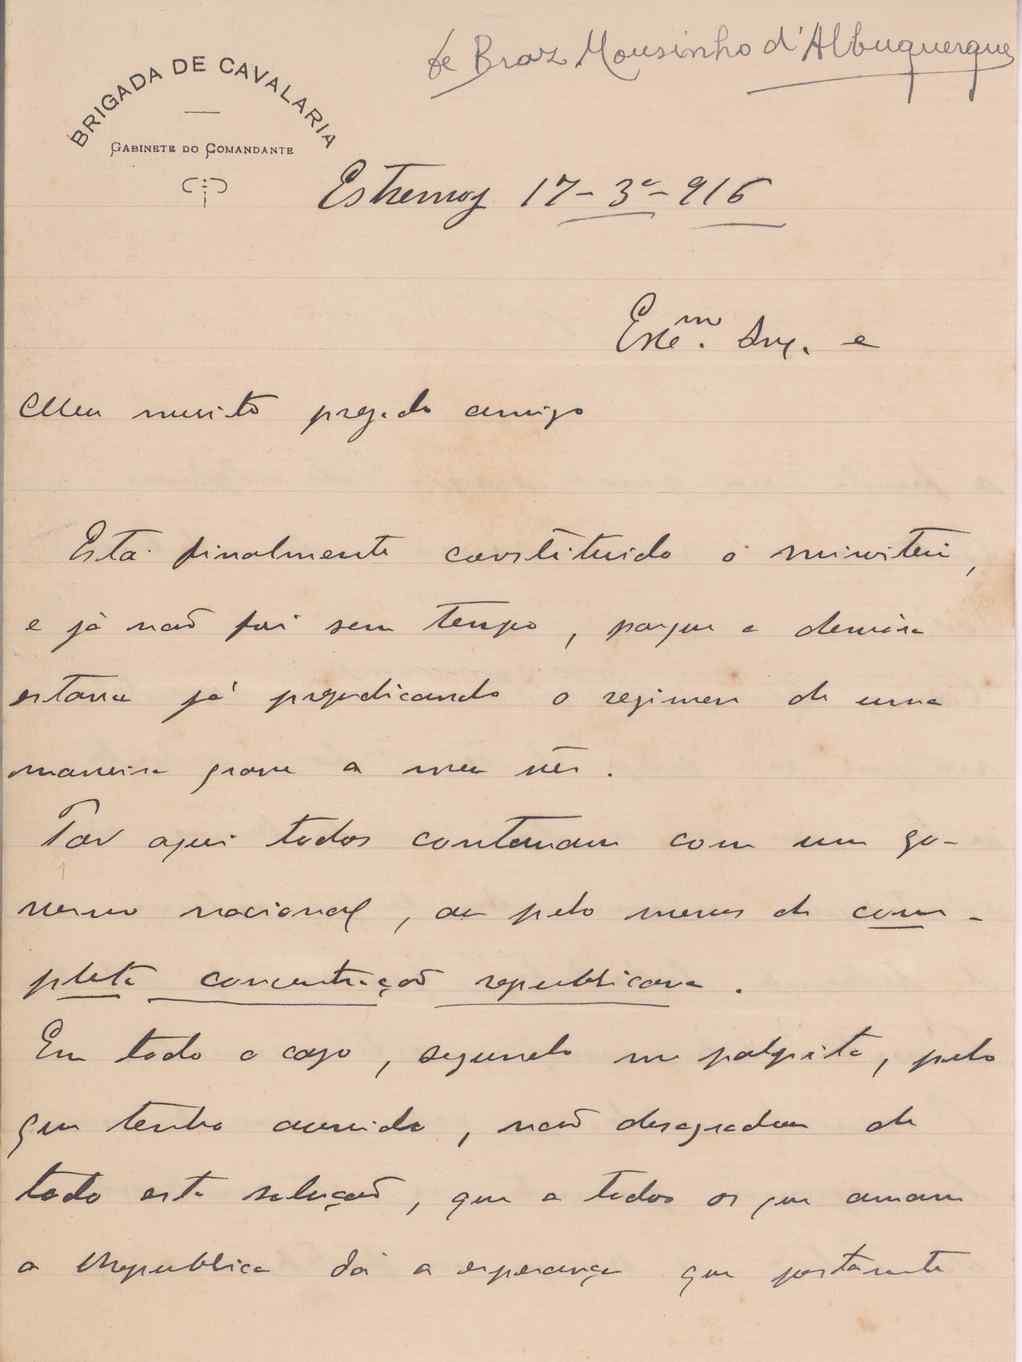 de Braz Mousinho d'Albuquerque
BRIGADA DE CAVALARIA
GABINETE DO COMANDANTE
Estremoz 17-3º-916
Exce.m Snr. e
Meu muito prezado amigo
Está finalmente constituido o ministerio,
e já não foi sem tempo, porque a demora
estava já prejudicando o regimen de uma
maneira grave a meu vêr.
Por aqui todos contavam com um go-
verno nacional, ou pelo menos de com-
pleta concentração republicana.
Em todo o caso, segundo me palpita, pelo
que tenho ouvido, não desagradou de
todo esta solução, que a todos os que amam
a Republica dá a esperança que